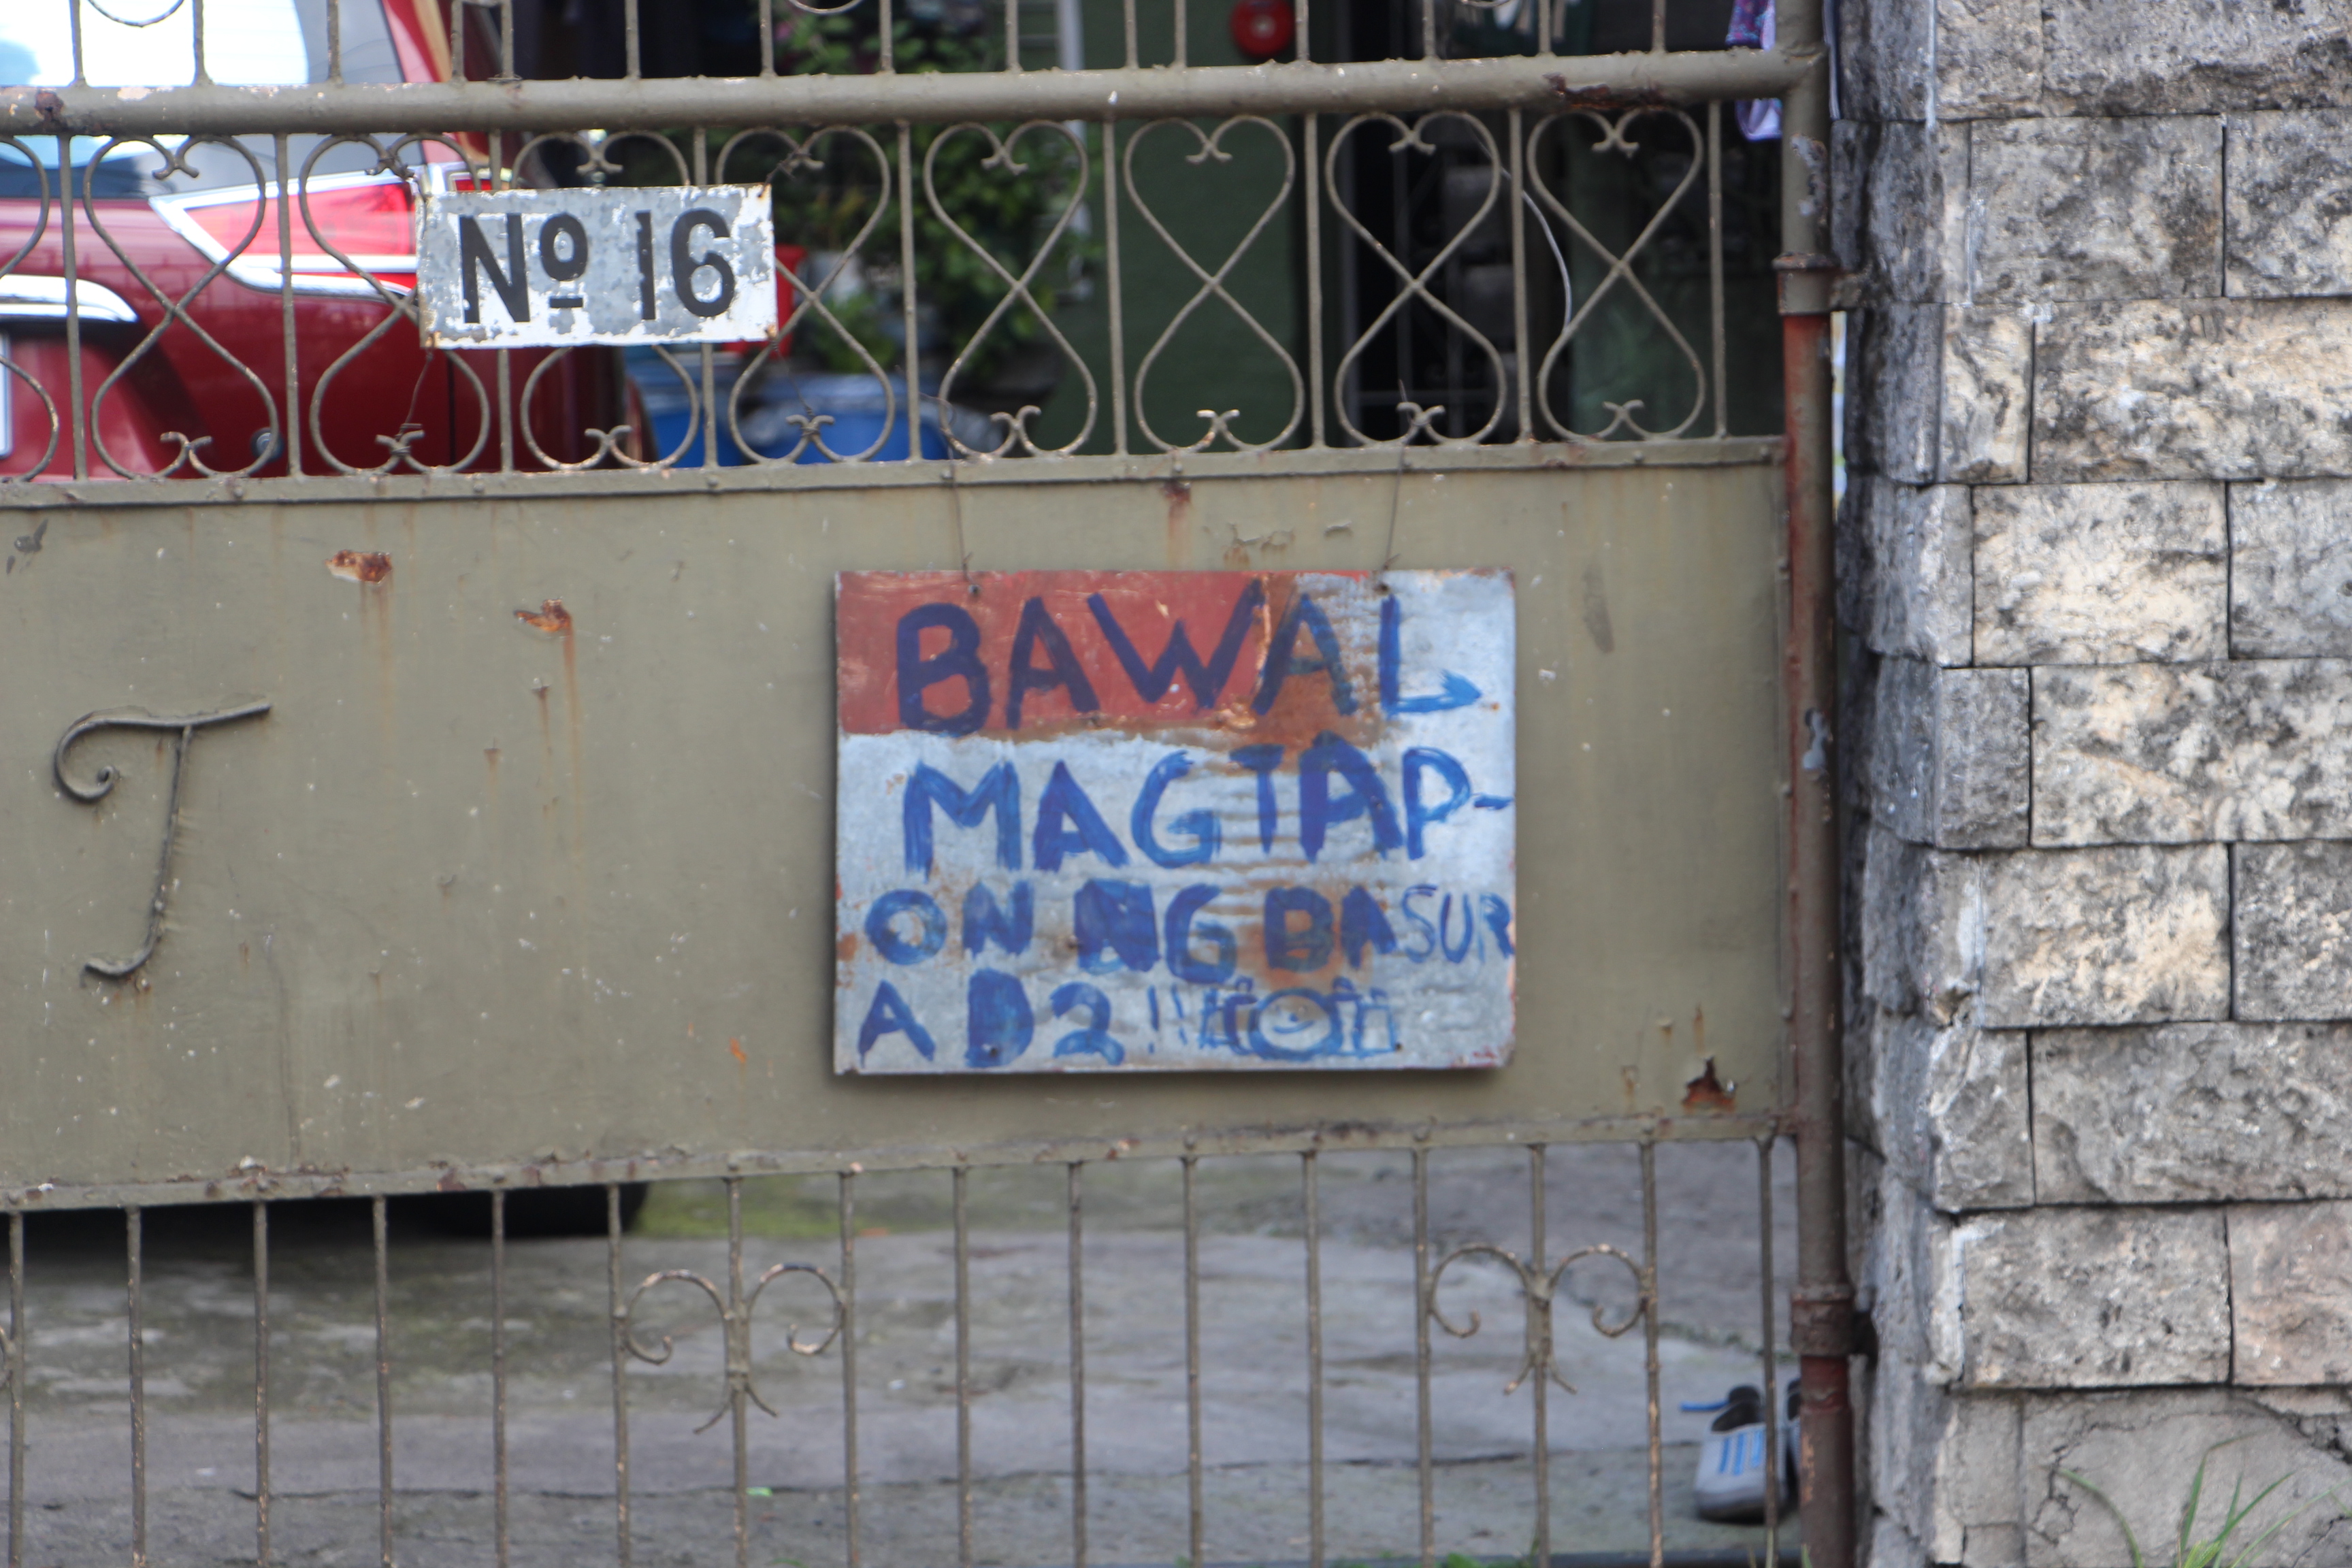 Nº 16
T
BAWAL
MAGTAP-
ON NG BASUR
A D2 !!